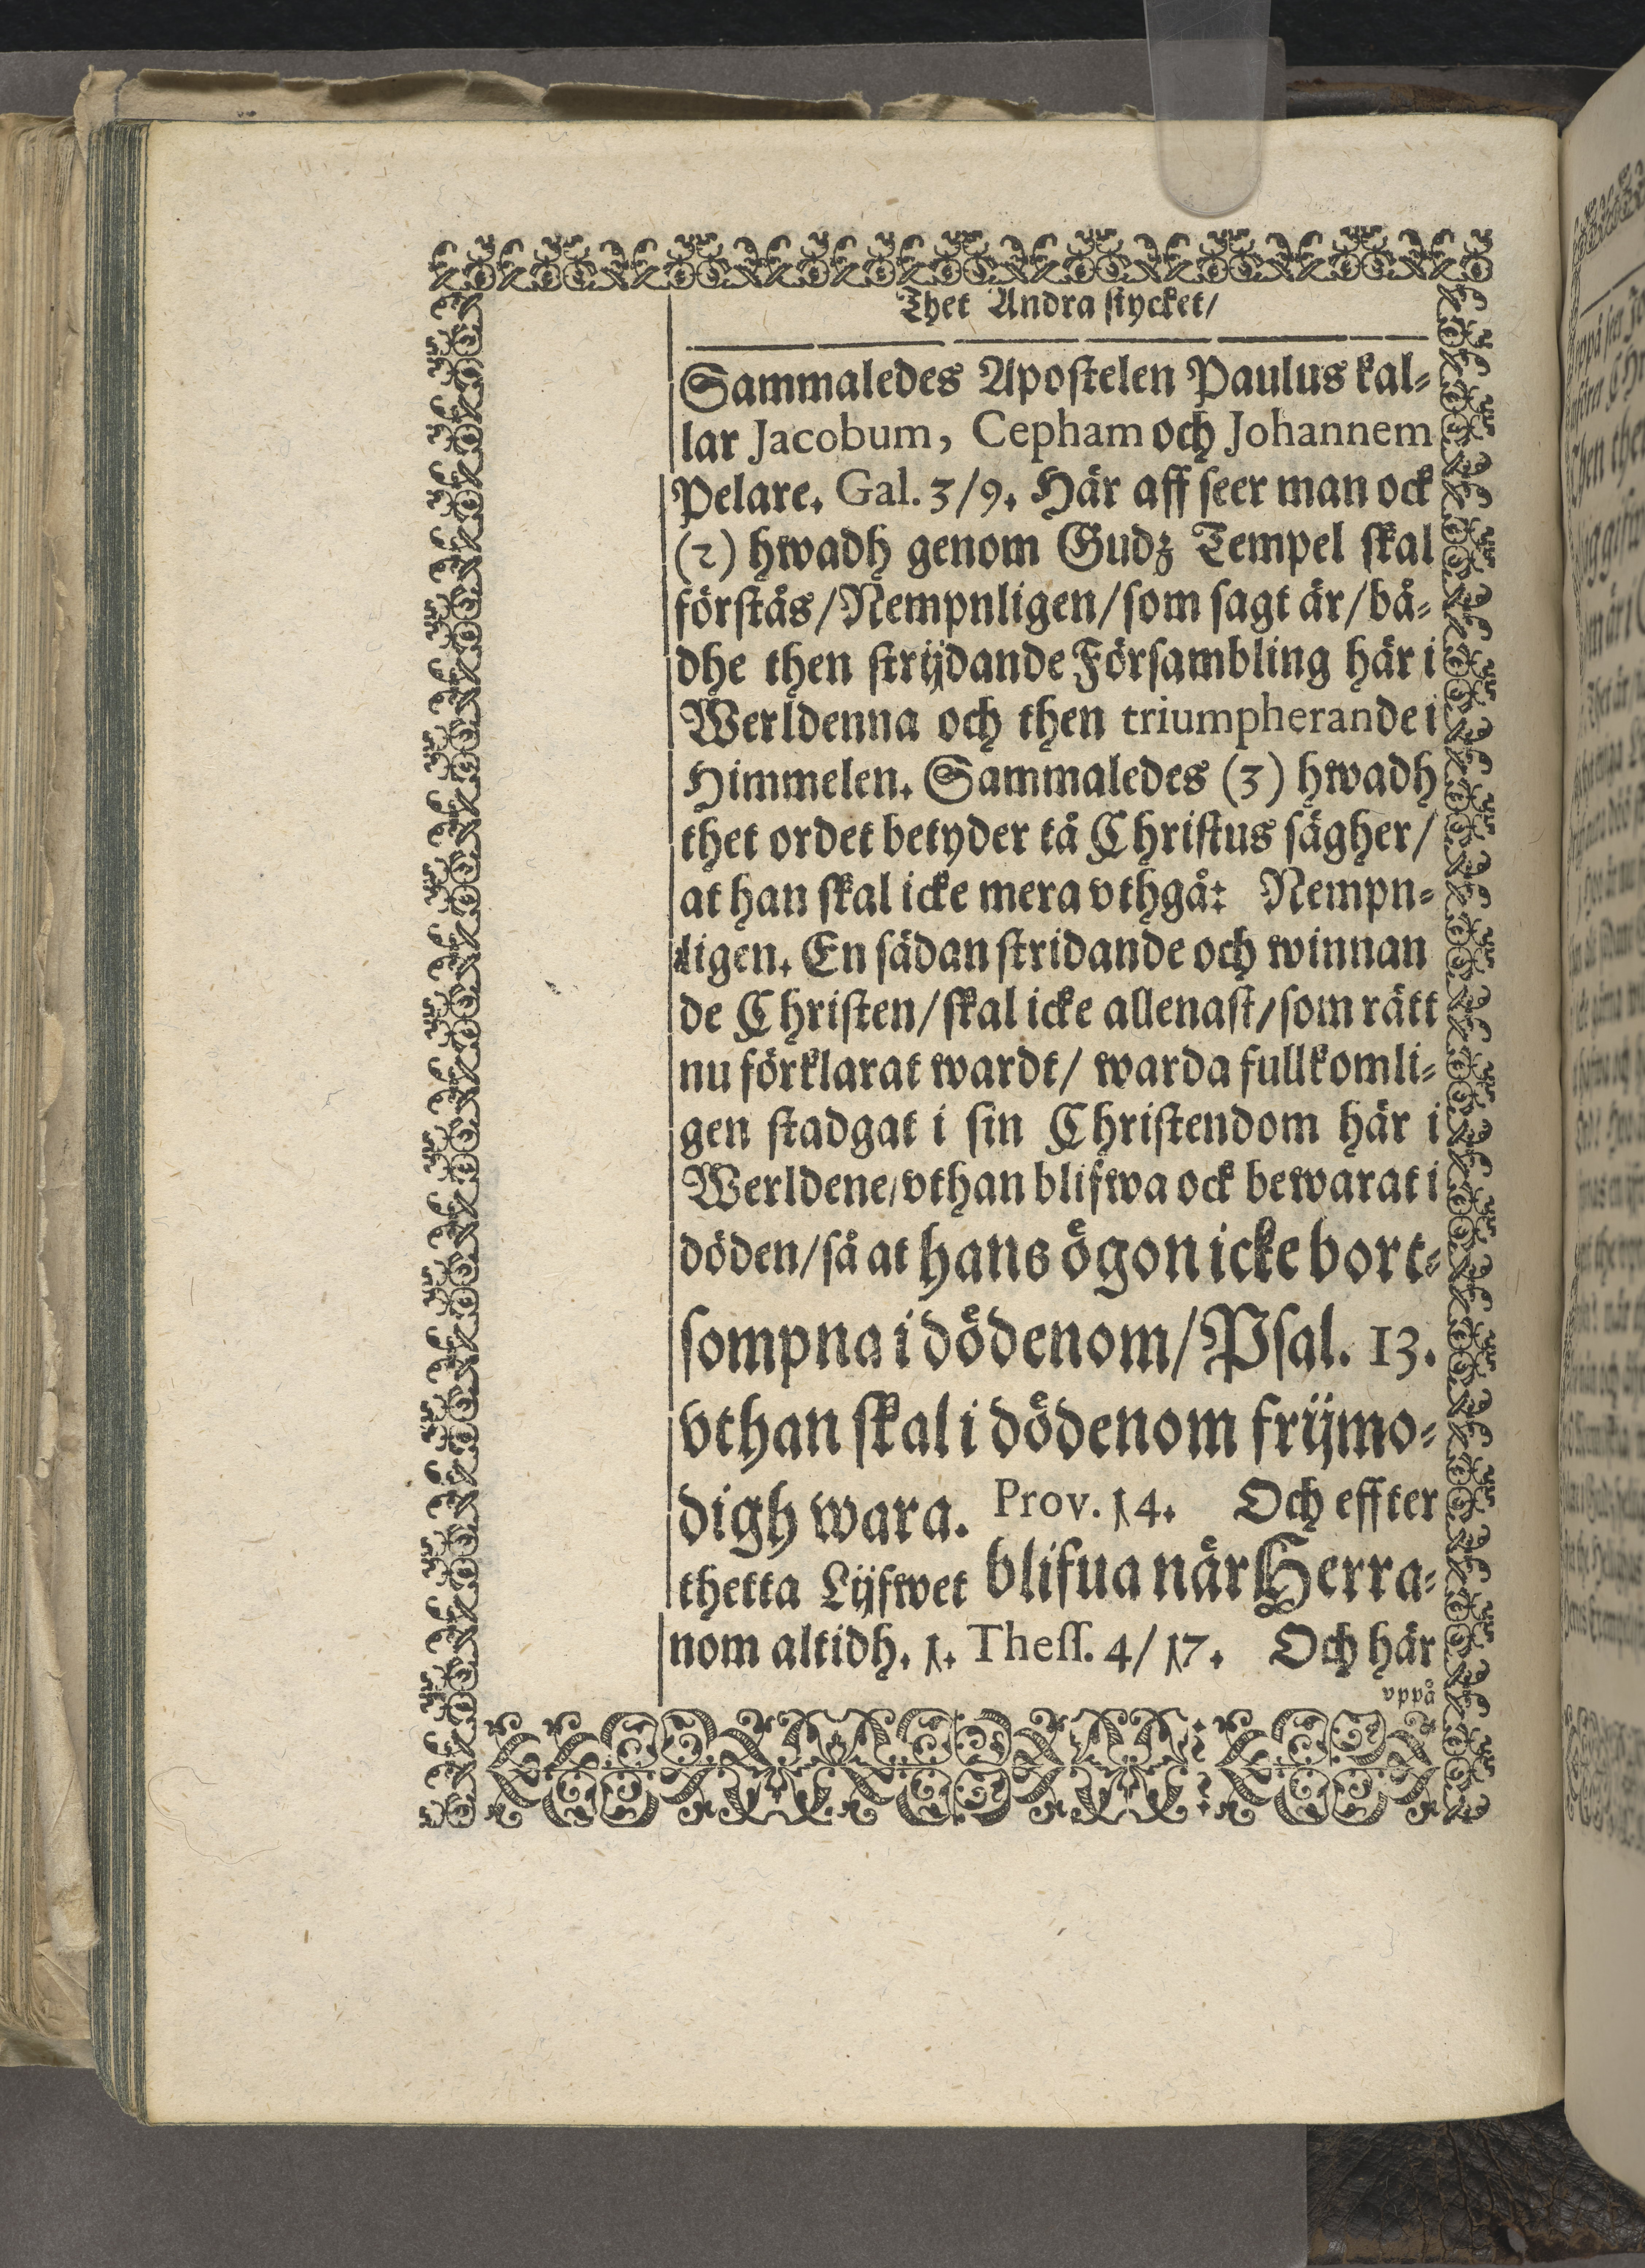 Thet Andra stycket/
Sammaledes Apostelen Paulus kal-
lar Jacobum, Cepham och Johannem
Pelare. Gal. 3/9. Här aff seer man ock
(2) hwadh genom Gudz Tempel skal
förstås/Nempnligen/som sagt är/bå-
dhe then strijdande Försambling här i
Werldenna och then triumpherande i
Himmelen. Sammaledes (3) hwadh
thet ordet betyder tå Christus sägher/
at han skal icke mera vthgå: Nempn-
ligen. En sådan stridande och winnan
de Christen/skal icke allenast/som rätt
nu förklarat wardt/ warda fullkomli-
gen stadgat i sin Christendom här i
Werldene/vthan blifwa ock bewarat i
döden/så at hans ögon icke bort-
sompna i dödenom/Psal. 13.
vthan skal i dödenom frijmo-
digh wara. Prov. 14. Och effter
thetta Lijfwet blifua när Herra-
nom altidh. 1. Thess. 4/17. Och här
vppå